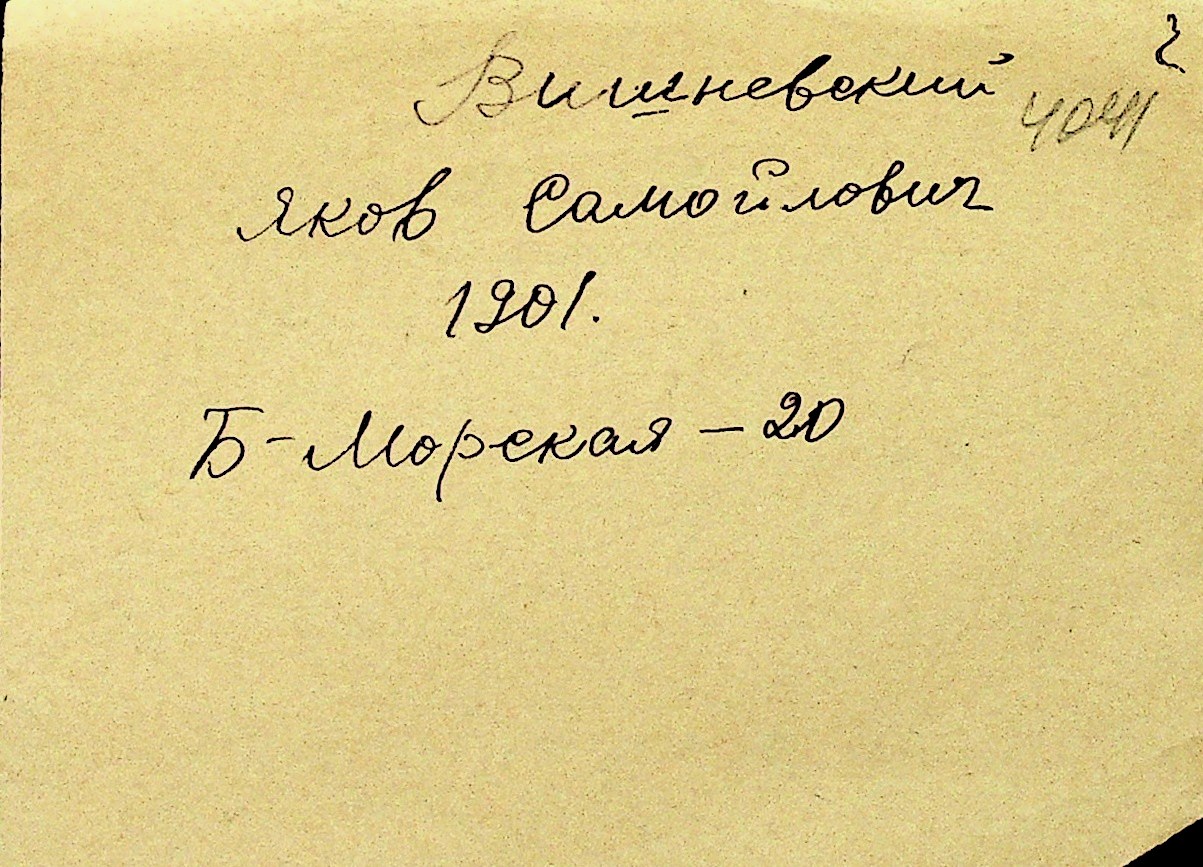 Вишневский
Яков Самойлович
1901.
Б-Морская - 20